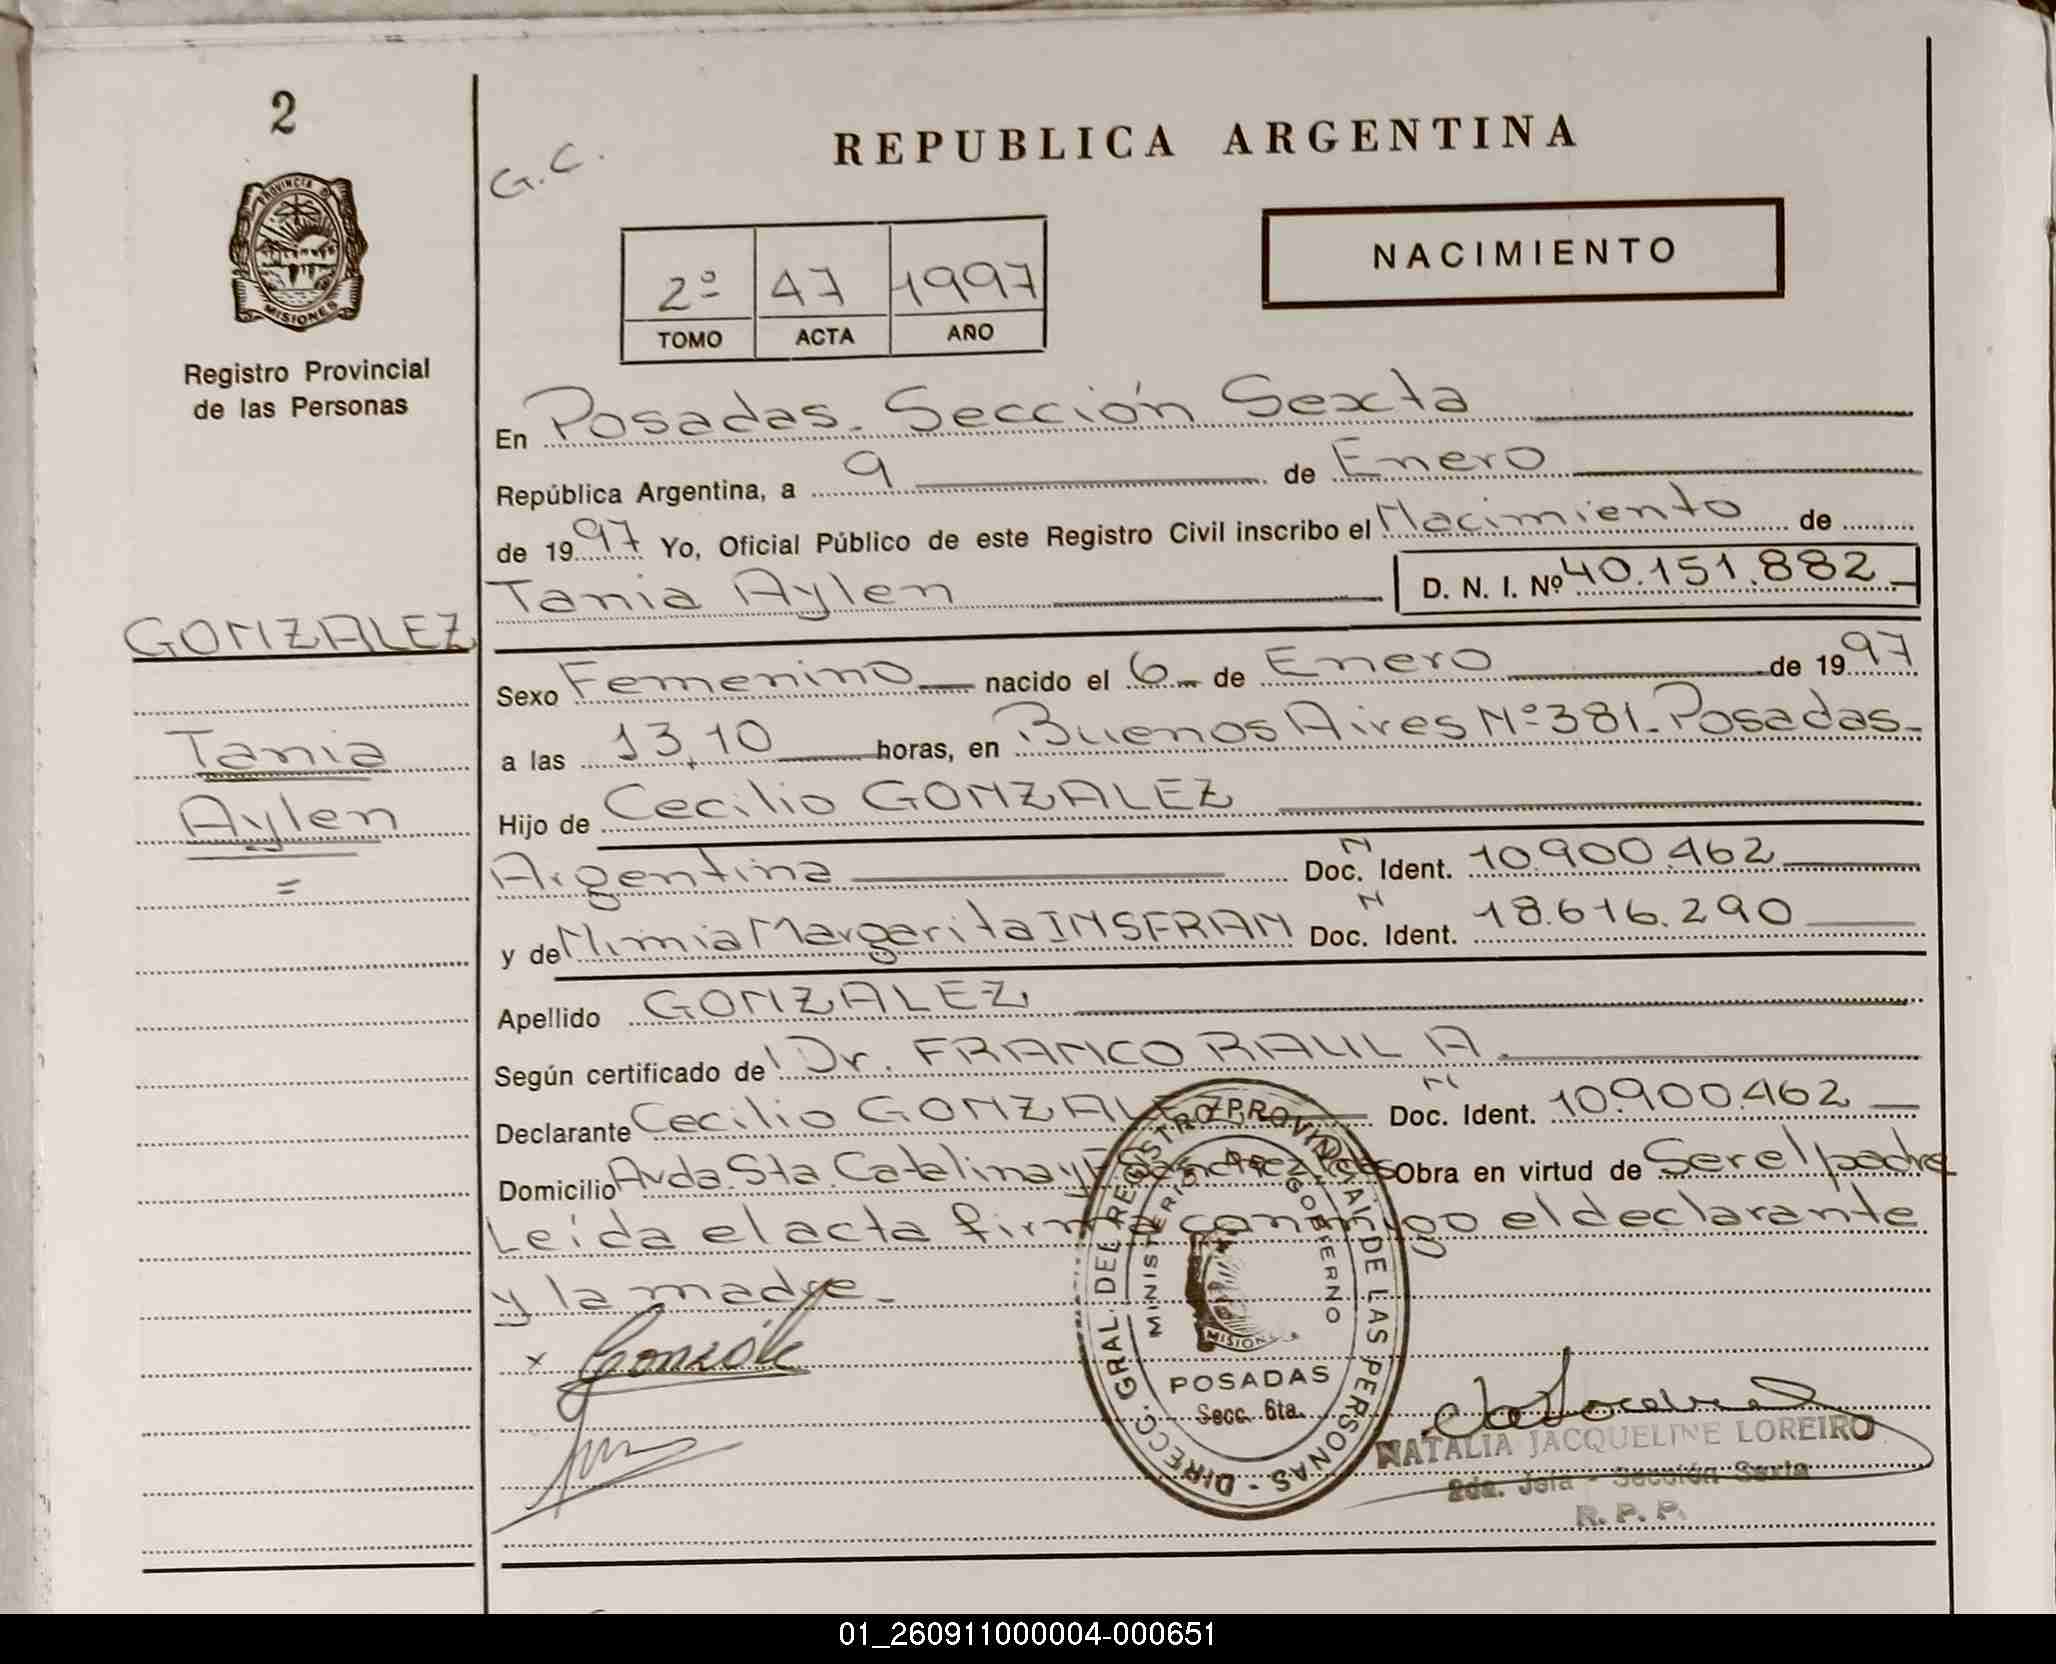 2
G.C.
REPUBLICA ARGENTINA
PROVINCIA D
MISIONES
2º 47 1997
TOMO ACTA AÑO
NACIMIENTO
Registro Provincial
de las Personas
En Posadas. Sección Sexta
República Argentina, a 9 de Enero
de 1997 Yo, Oficial Público de este Registro Civil inscribo el Nacimiento de
Tania Aylen D. N. I. Nº 40.151.882
GONZALEZ
Tania
Aylen
Sexo Femenino nacido el 6 de Enero de 1997
a las 13,10 horas, en Buenos Aires Nº 381. Posadas.
Hijo de Cecilio GONZALEZ
Argentina Doc. N Ident. 10.900.462
y de Mimia Margarita INSFRAN Doc. N Ident. 18.616.290
Apellido GONZALEZ
Según certificado de Dr. FRANCO RAUL A.
Declarante Cecilio GONZALEZ Doc. N Ident. 10.900.462
Domicilio Avda. Sta. Catalina y Obra en virtud de Ser el padre
Leída el acta firma conmigo el declarante
y la madre.
x
DIRECC. GRAL. DEL REGISTRO PROVINCIAL DE LAS PERSONAS -
MINISTERIO DE GOBIERNO
MISIONES
POSADAS
Secc. 6ta.
NATALIA JACQUELINE LOREIRO
2da. Jefa - Sección Sexta
R. P. P.
01_260911000004-000651